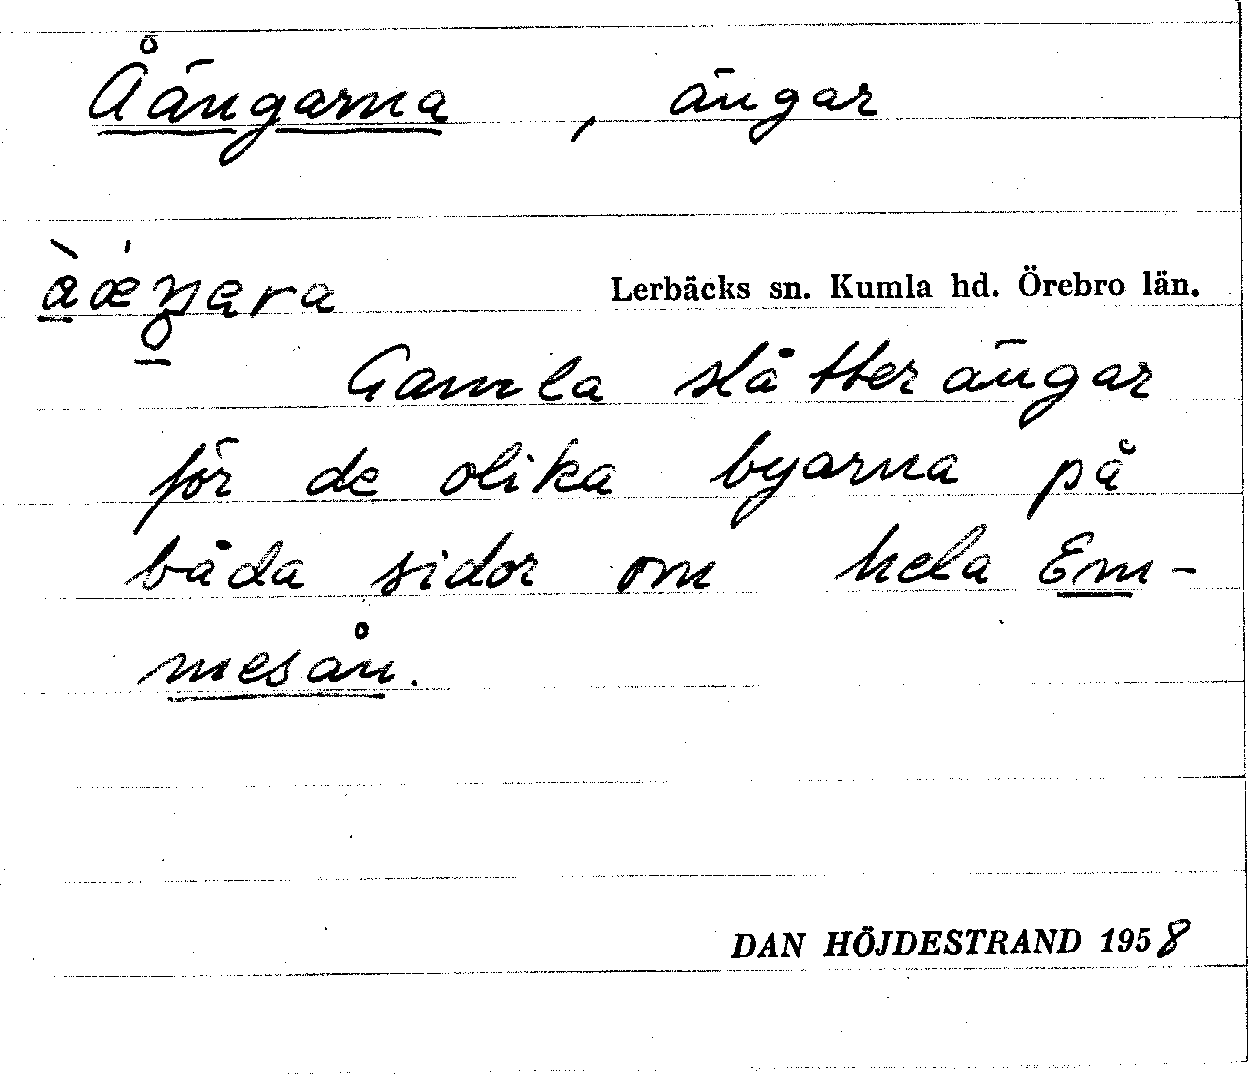 Åängarna , ängar
Lerbäcks sn. Kumla hd. Örebro län.
Gamla slåtterängar
för de olika byarna på
båda sidor om hela Em-
mesån.
DAN HÖJDESTRAND 1958